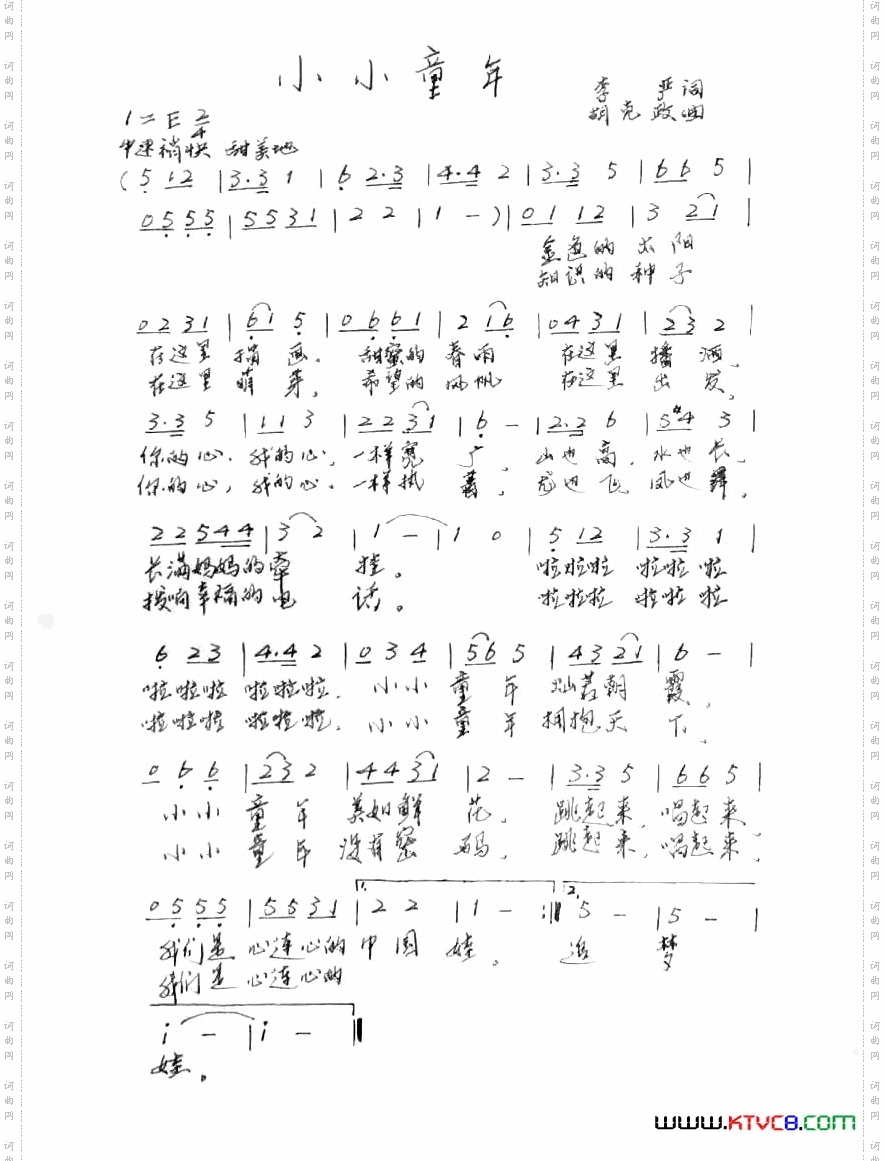 小小童年
李严词
胡克政曲
1=E 2/4
中速稍快 甜美地
(5 12 | 3·3 1 | 6 2·3 | 4·4 2 | 3·3 5 | 66 5 |
0555 | 5531 | 2 2 | 1 - ) | 01 12 | 3 21 |
金色的太阳
知识的种子
0231 | 61 5 | 0661 | 2 16 | 0431 | 23 2 |
在这里描画, 甜蜜的春雨 在这里播洒,
在这里萌芽, 希望的风帆 在这里出发。
3·3 5 | 11 3 | 22 31 | 6 - | 2·2 6 | 5#4 3 |
你的心, 我的心, 一样宽广, 山也高, 水也长,
你的心, 我的心, 一样执著, 龙也飞, 凤也舞,
22 544 | 3 2 | 1 - | 1 0 | 5 12 | 3·3 1 |
长满妈妈的牵挂。 啦啦啦 啦啦啦
拨响幸福的电话。 啦啦啦 啦啦啦
6 23 | 4·4 2 | 0 3 4 | 56 5 | 43 21 | 6 - |
啦啦啦 啦啦啦, 小小童年 灿若朝霞,
啦啦啦 啦啦啦, 小小童年 拥抱天下,
0 6 6 | 23 2 | 44 31 | 2 - | 3·3 5 | 66 5 |
小小童年 美如鲜花, 跳起来, 唱起来,
小小童年 没有密码, 跳起来, 唱起来,
1. 2.
0555 | 5531 | 2 2 | 1 - :‖ 5 - | 5 - |
我们是心连心的中国娃。 追梦
我们是心连心的
i - | i - ‖
娃。
www.KTVC8.com
词曲网